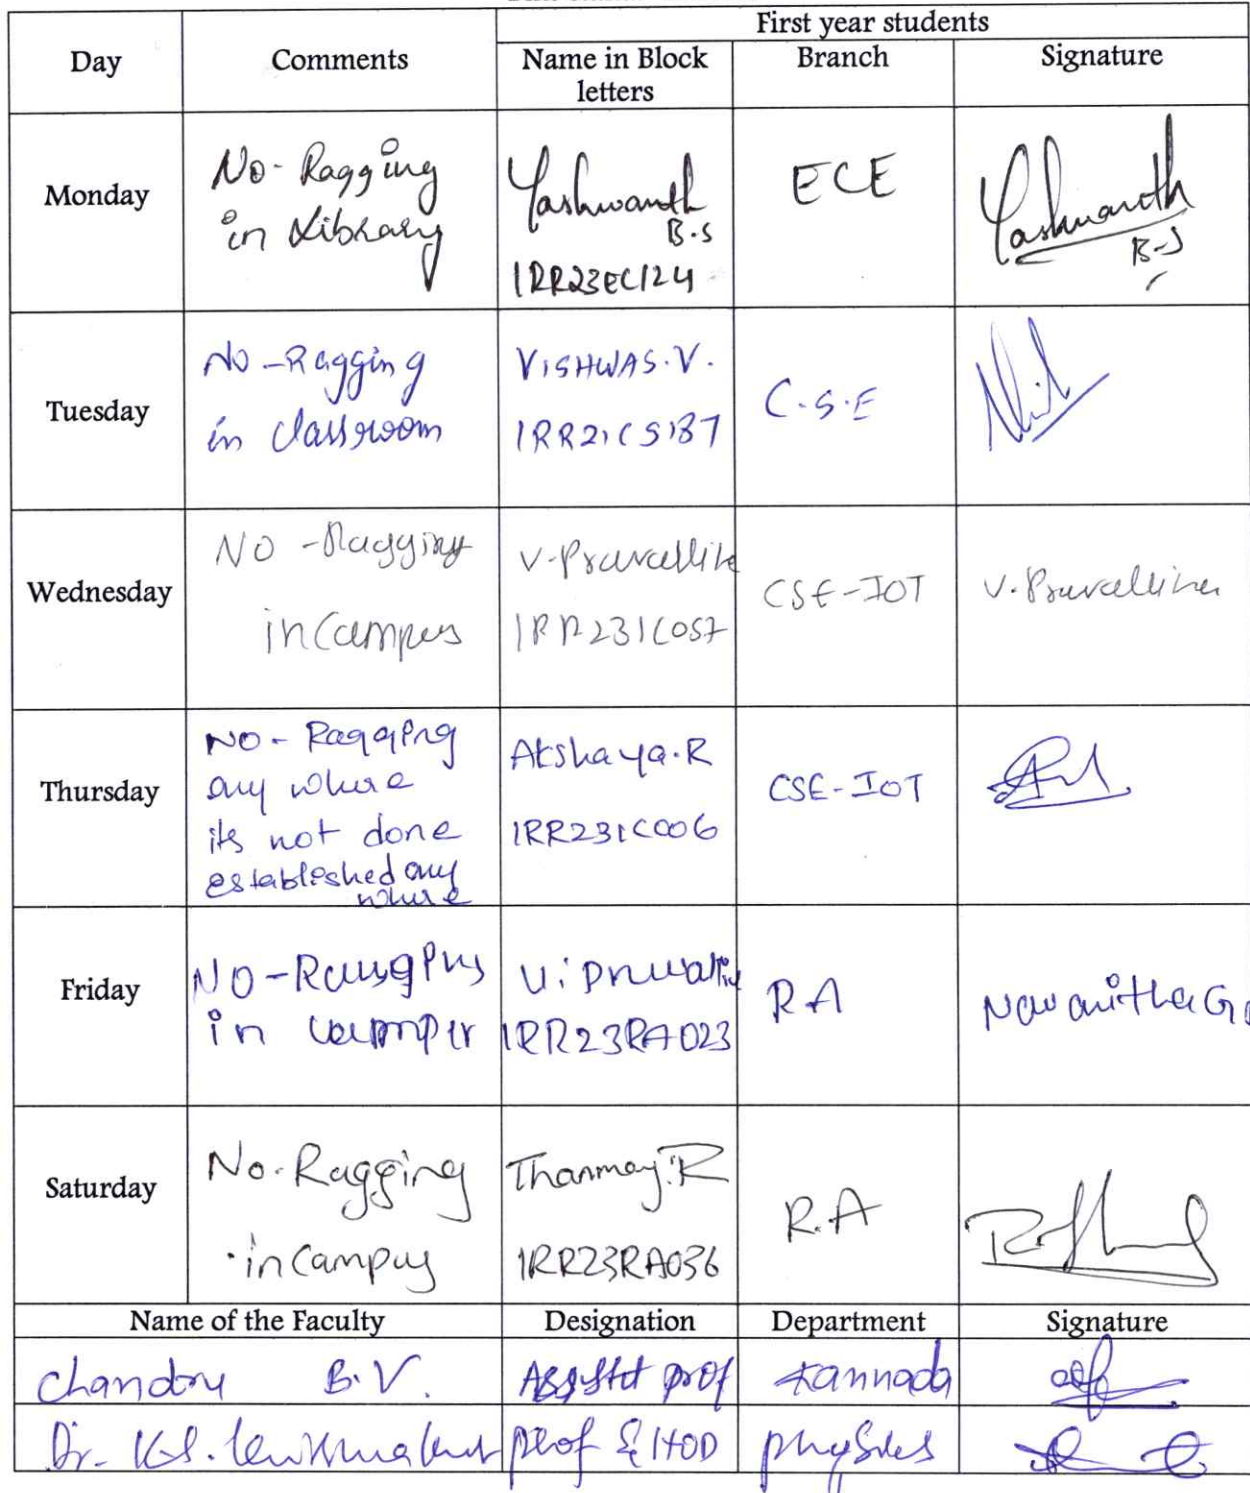 First year students
Day Comments Name in Block letters Branch Signature
Monday
No-Ragging
in Library
Yashwanth
B.S
1RR23EC124
ECE
Yashwanth
B-S
Tuesday
No-Ragging
in classroom
VISHWAS.V.
1RR21CS187
C.S.E
Wednesday
NO-Ragging
in campus
V.Pravallika
1RR23IC057
CSE-IOT
V.Pravallika
Thursday
NO-Ragging
any where
its not done
established any
where
Akshaya.R
1RR23IC006
CSE-IOT
Friday
NO-Ragging
in
1RR23RA023
RA
Navanitha G
Saturday
No.Ragging
in campus
Thanmay.R
1RR23RA036
R.A
Name of the Faculty Designation Department Signature
Chandru B.V. prof Kannada
Dr. K.S. prof & HOD physics